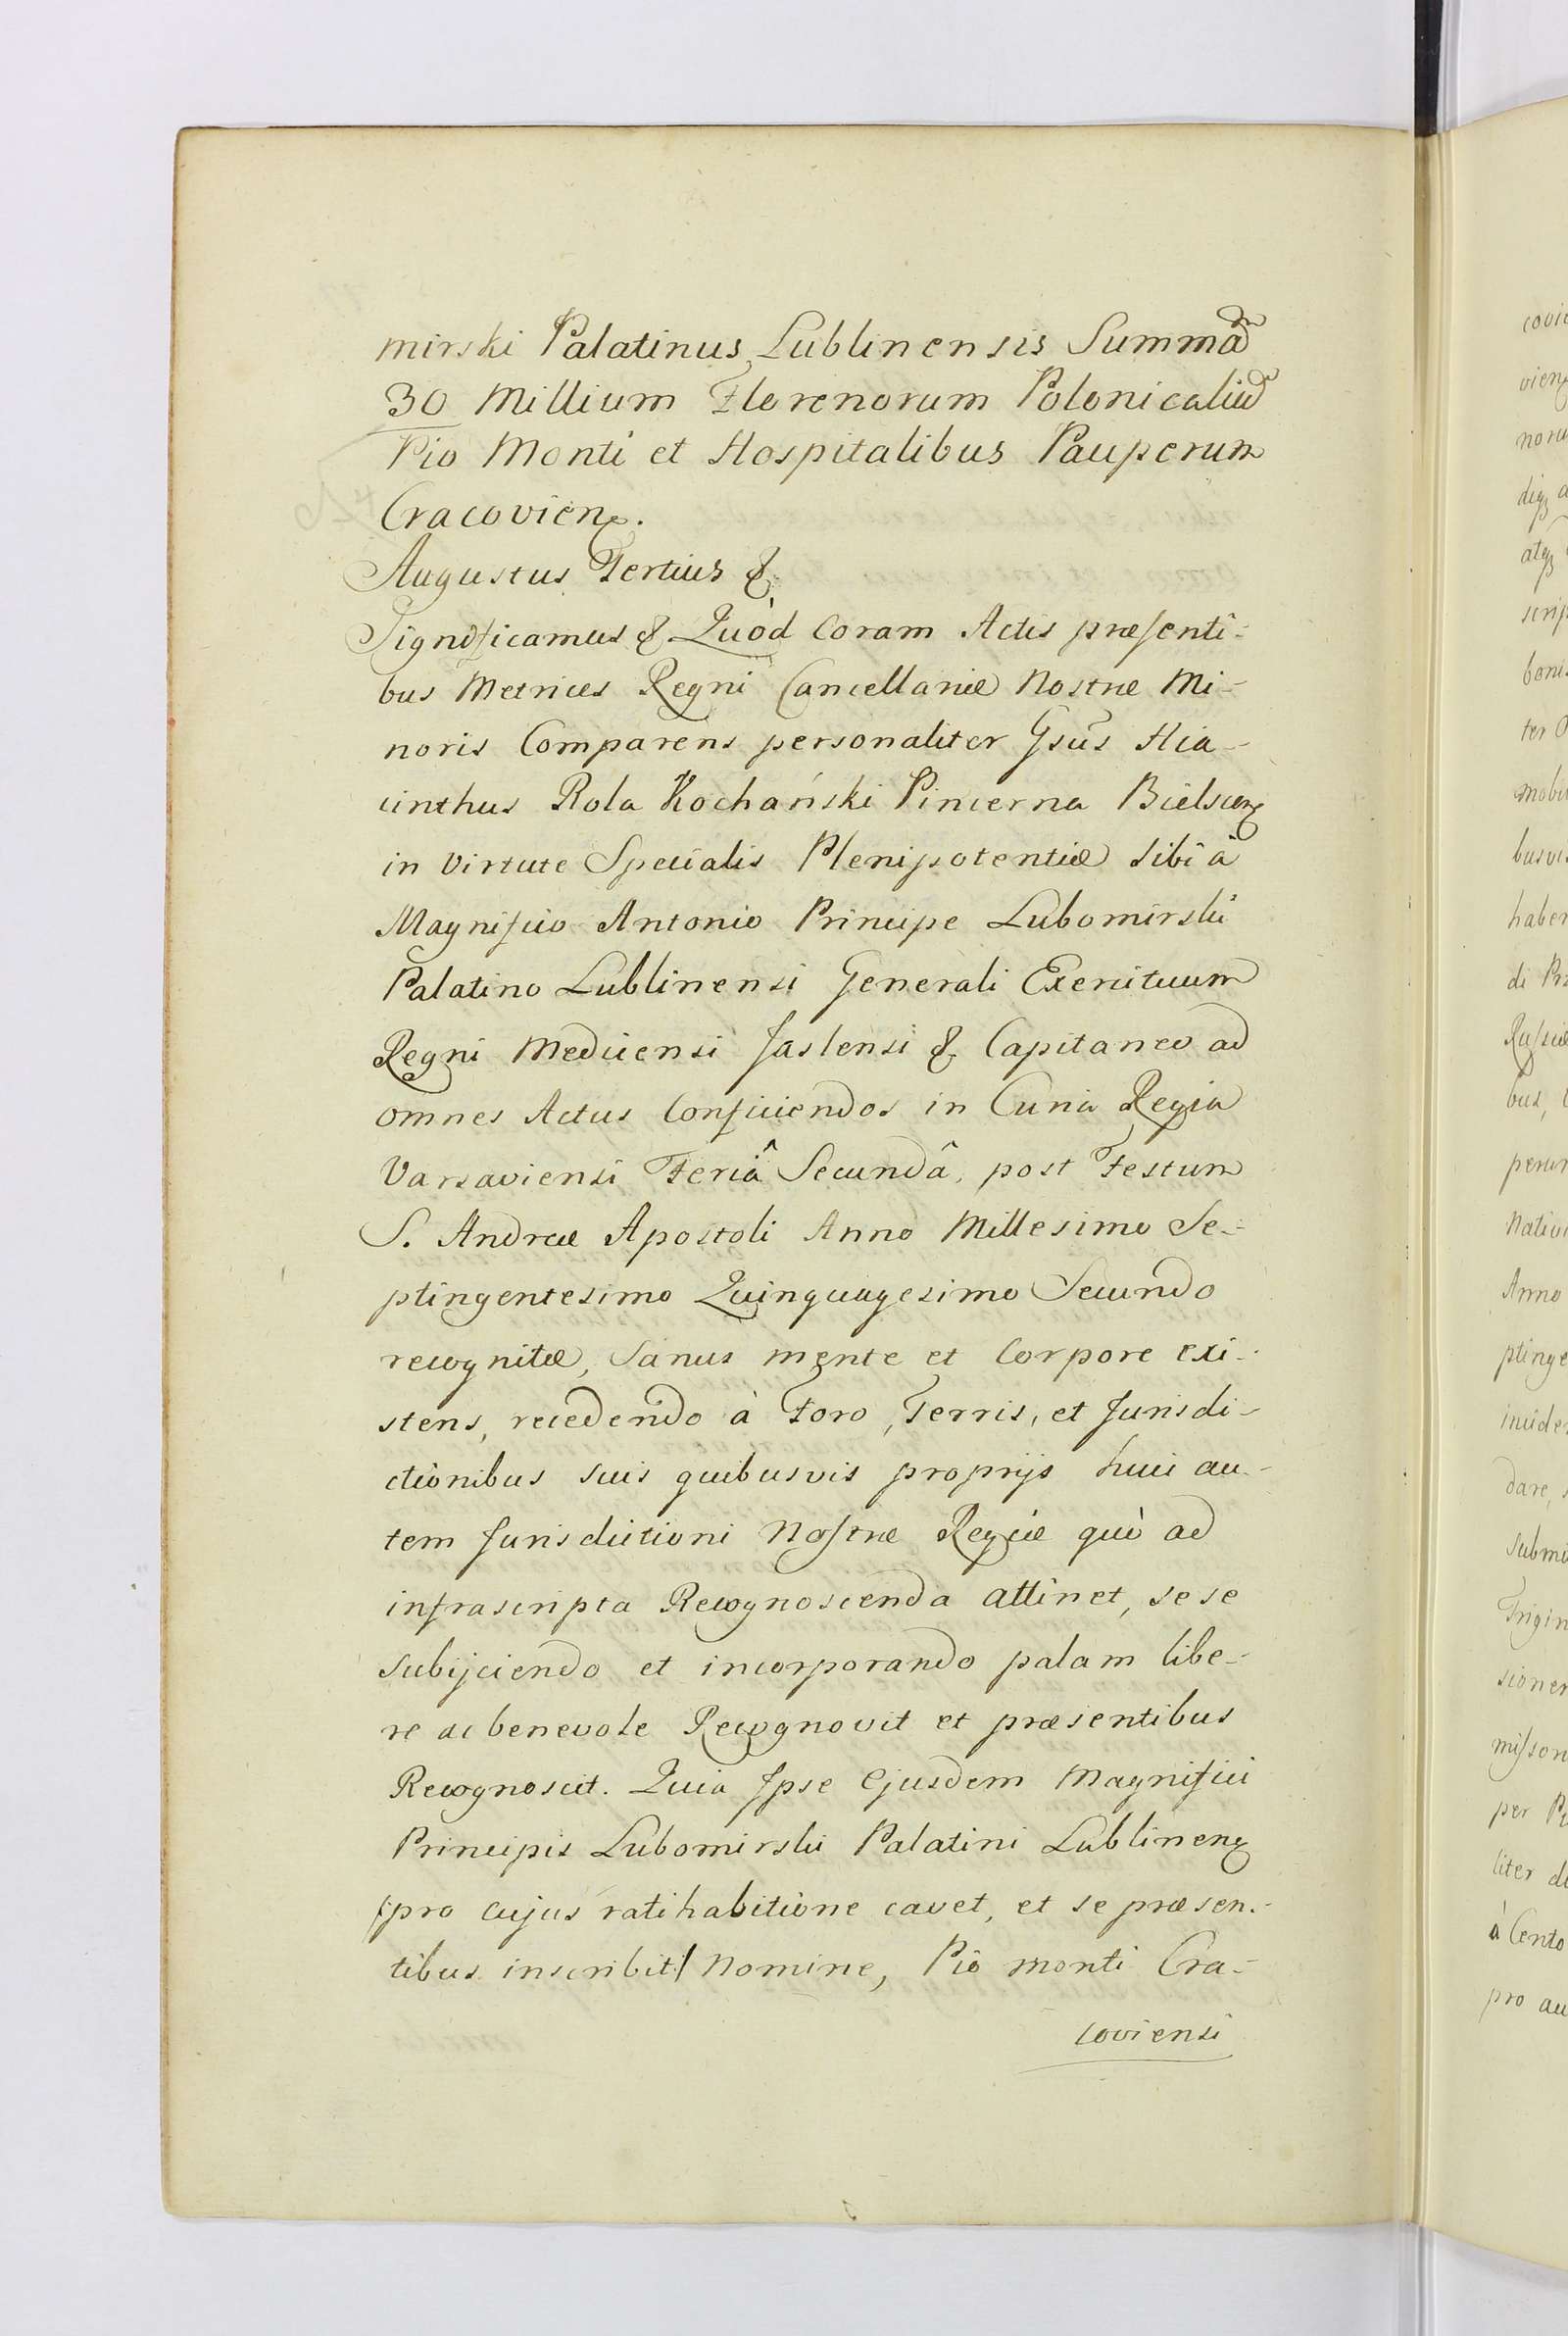 mirski Palatinus Lublinensis Summã
30 Millium Florenorum Polonicaliũ
Pio Monti et Hospitalibus Pauperum
Cracovien.
Augustus Tertius &.
Significamus & Quòd Coram Actis præsenti-
bus Metrices Regni Cancellariæ Nostræ Mi-
noris Comparens personaliter Gsũs Hia-
cinthus Rola Kochański Pincerna Bielscen
in virtute Specialis Plenipotentiæ sibi à
Magnifico Antonio Principe Lubomirski
Palatino Lublinensi Generali Exercituum
Regni Medicensi Jaslensi & Capitaneo ad
omnes Actus Conficiendos in Curia Regia
Varsaviensi Feriâ Secundâ, post Festum
S. Andreæ Apostoli Anno Millesimo Se-
ptingentesimo Quinquagesimo Secundo
recognitæ, Sanus mente et Corpore exi-
stens, recedendo à Foro, Terris, et Jurisdi-
ctionibus suis quibusvis proprijs huic au-
tem Jurisdictioni Nostræ Regiæ quò ad
infrascripta Recognoscenda attinet, se se
subijciendo et incorporando palam libe-
re ac benevole Recognovit et præsentibus
Recognoscit. Quia Ipse Ejusdem Magnifici
Principis Lubomirski Palatini Lublinen
/pro cujus ratihabitione cavet, et se præsen-
tibus inscribit/ Nomine, Pio monti Cra-
coviensi